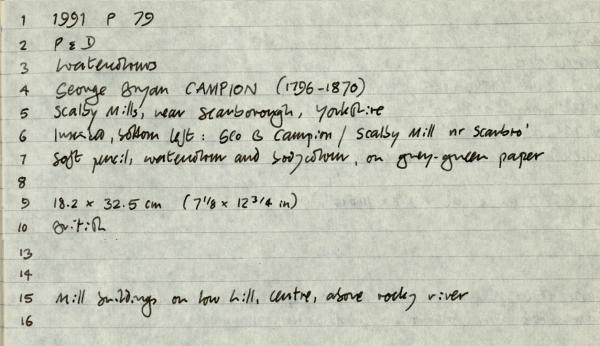 1 1991 P 79
2 P & D
3 Watercolours
4 George Bryan CAMPION (1796-1870)
5 Scalby Mills, near Scarborough, Yorkshire
6 Inscribed, bottom left: Geo B Campion / Scalby Mill nr Scarbro'
7 Soft pencil, watercolour and bodycolour, on grey-green paper
8
9 18.2 x 32.5 cm (7 1/8 x 12 3/4 in)
10 British
13
14
15 Mill buildings on low hill, centre, above rocky river
16